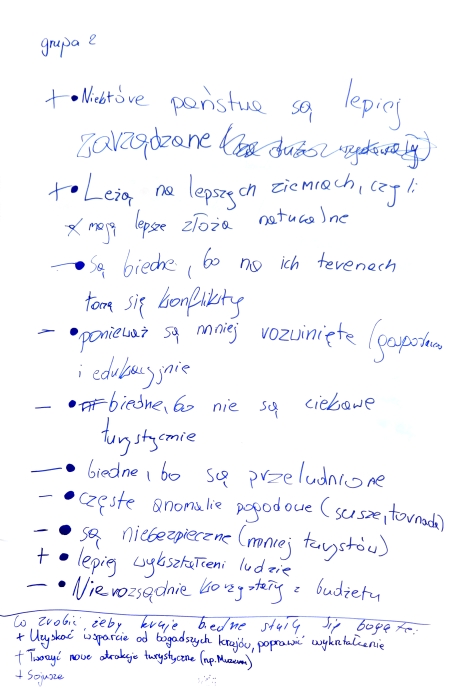 grupa 2
+ • Niektóre państwa są lepiej
zarządzane (za dużo wydawały)
+ • Leżą na lepszych ziemiach, czyli
mają lepsze złoża naturalne
— • Są biedne, bo na ich terenach
toczą się konflikty
— • ponieważ są mniej rozwinięte (gospodarczo
i edukacyjnie
— • biedne, bo nie są ciekawe
turystycznie
— • biedne, bo są przeludnione
— • częste anomalie pogodowe (susze, tornada)
— • są niebezpieczne (mniej turystów)
+ • lepiej wykształceni ludzie
— • Nierozsądnie korzystały z budżetu
Co zrobić, żeby kraje biedne stały się bogate:
+ Uzyskać wsparcie od bogadszych krajów, poprawić wykształcenie
+ Tworzyć nowe atrakcje turystyczne (np. Muzeum)
+ Sojusze